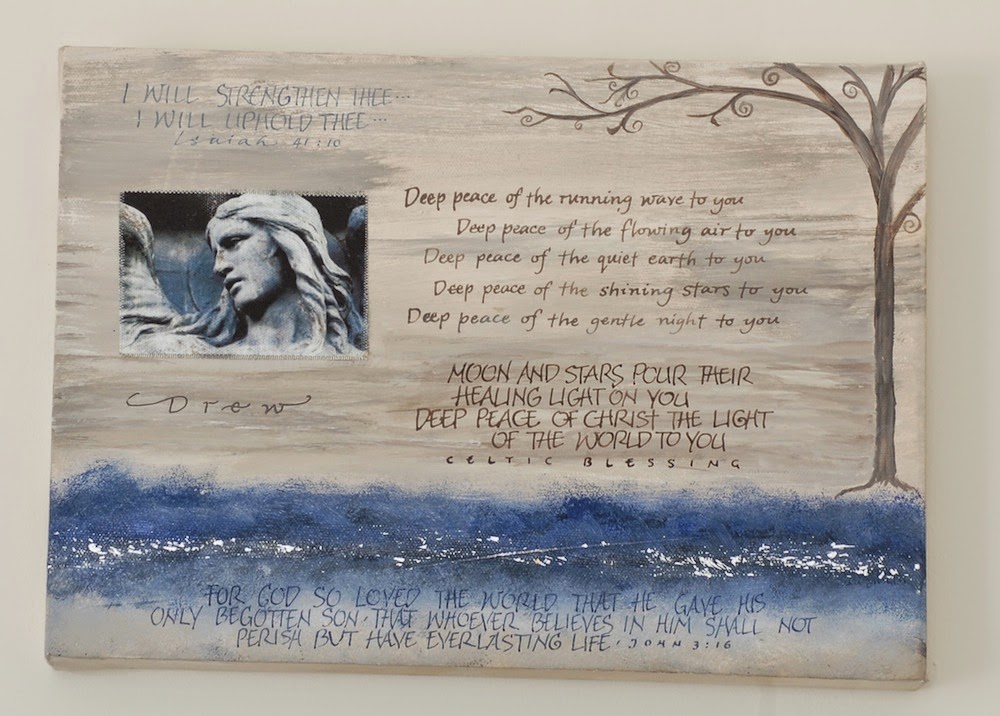 I WILL STRENGTHEN THEE...
I WILL UPHOLD THEE...
Isaiah 41:10
Deep peace of the running wave to you
Deep peace of the flowing air to you
Deep peace of the quiet earth to you
Deep peace of the shining stars to you
Deep peace of the gentle night to you
MOON AND STARS POUR THEIR
HEALING LIGHT ON YOU
DEEP PEACE OF CHRIST THE LIGHT
OF THE WORLD TO YOU
CELTIC BLESSING
Drew
FOR GOD SO LOVED THE WORLD THAT HE GAVE HIS
ONLY BEGOTTEN SON · THAT WHOEVER BELIEVES IN HIM SHALL NOT
PERISH BUT HAVE EVERLASTING LIFE · JOHN 3:16